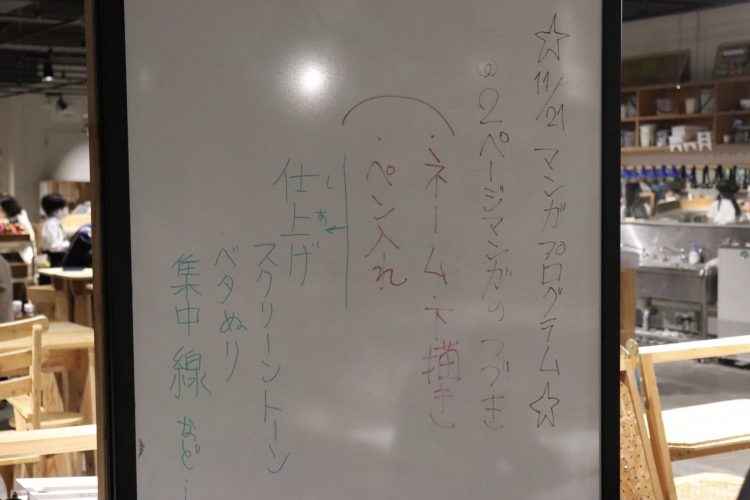 ☆11/21 マンガプログラム☆
◎2ページマンガのつづき
・ネーム・下描き
・ペン入れ
仕上げ
しあ
スクリーントーン
ベタぬり
集中線 など…